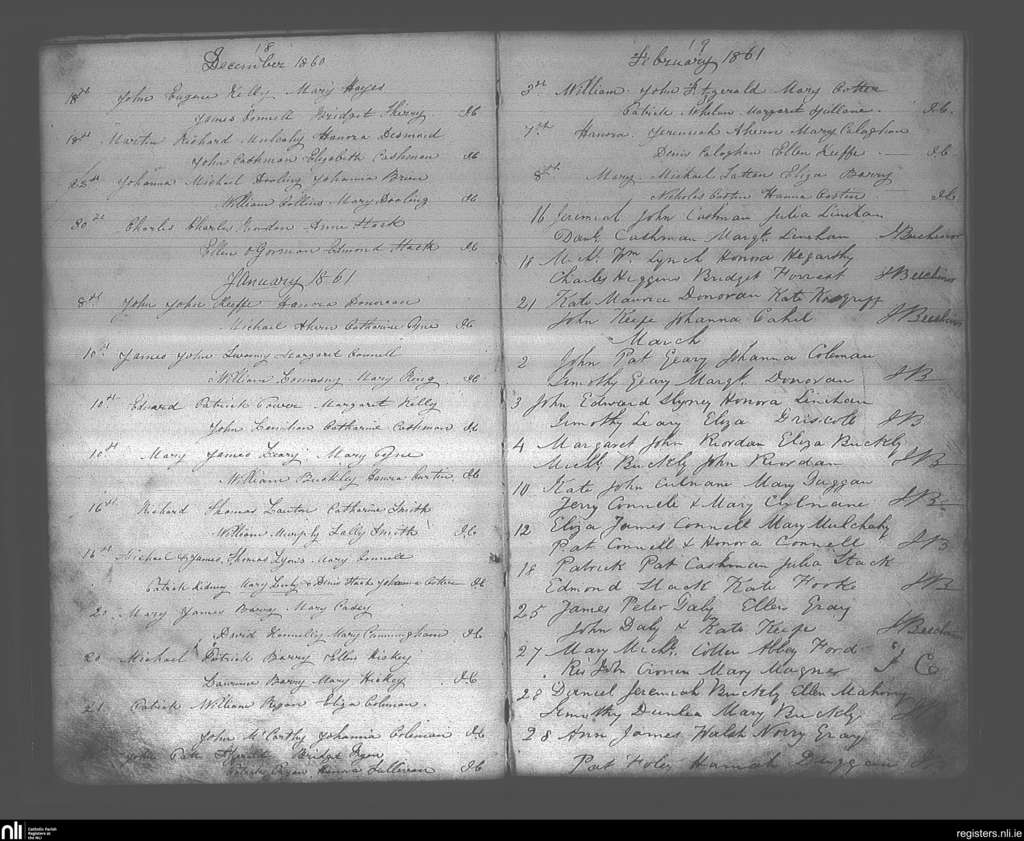 18
December 1860
18th John Eugene Kelly Mary Hayes
James Connell Bridget Sherry D.C
18th Martin Richard Mulcahy Hanora Desmond
John Cashman Elizabeth Cashman D.C
22nd Johanna Michael Dooling Johanna Brien
William Collins Mary Dooling D.C
30th Charles Charles Anne Stack
Ellen O'Gorman Edmond Stack D.C
January 1861
8th John John Keeffe Hanora Donovan
Michael Ahern Catharine Cyne D.C
10th James John Margaret Connell
William Mary Ring D.C
10th Edward Patrick Power Margaret Kelly
John Catharine Cashman D.C
10th Mary James Leary Mary Cyne
William Buckley Hanora D.C
16th Richard Thomas Catharine Smith
William Murphy Smith D.C
16th Michael & James Thomas Lyons Mary Connell
Patrick Kidney Mary & Denis Stack Johanna D.C
20 Mary James Barry Mary Casey
David Mary Cunningham D.C
20 Michael Patrick Barry Ellen Hickey
Laurence Barry Mary Hickey D.C
21 Patrick William Ryan Eliza Coleman
John McCarthy Johanna Coleman D.C
John Pat Bridget Ryan
Ryan Hanora Sullivan D.C
19
February 1861
3rd William John Fitzgerald Mary Cotter
Patrick Margaret D.C.
7th Hanora Jeremiah Ahern Mary Calaghan
Denis Calaghan Ellen Keeffe D.C
8th Mary Michael Eliza Barry
Nicholas Hanna D.C
16 Jeremiah John Cashman Julia Linehan
Danl. Cashman Margt. Linehan J Beechinor
18 Michl. Wm Lynch Honora Hegarthy
Charles Higgins Bridget Forrest J Beechinor
21 Kate Maurice Donovan Kate
John Keefe Johanna Cahil J Beechinor
March
2 John Pat Geary Johanna Coleman
Timothy Geary Margt. Donovan JB
3 John Edward Slyney Honora Linehan
Timothy Leary Eliza Driscoll JB
4 Margaret John Riordan Eliza Buckly
Michl. Buckly John Riordan JB
10 Kate John Culnane Mary Duggan
Jerry Connell & Mary Culnane JB
12 Eliza James Connell Mary Mulchahy
Pat Connell & Honora Connell JB
18 Patrick Pat Cashman Julia Stack
Edmond Stack Kate JB
25 James Peter Daly Ellen Gray
John Daly & Kate Keefe J Beechinor
27 Mary Michl. Cotter Abbey Ford
Rev John Cronin Mary Magner J C
28 Daniel Jeremiah Buckly Ellen Mahony
Timothy Dunlea Mary Buckly JB
28 Ann James Walsh Norry Gray
Pat Foley Hannah Duggan JB
nli
Catholic Parish
Registers at
the NLI
registers.nli.ie